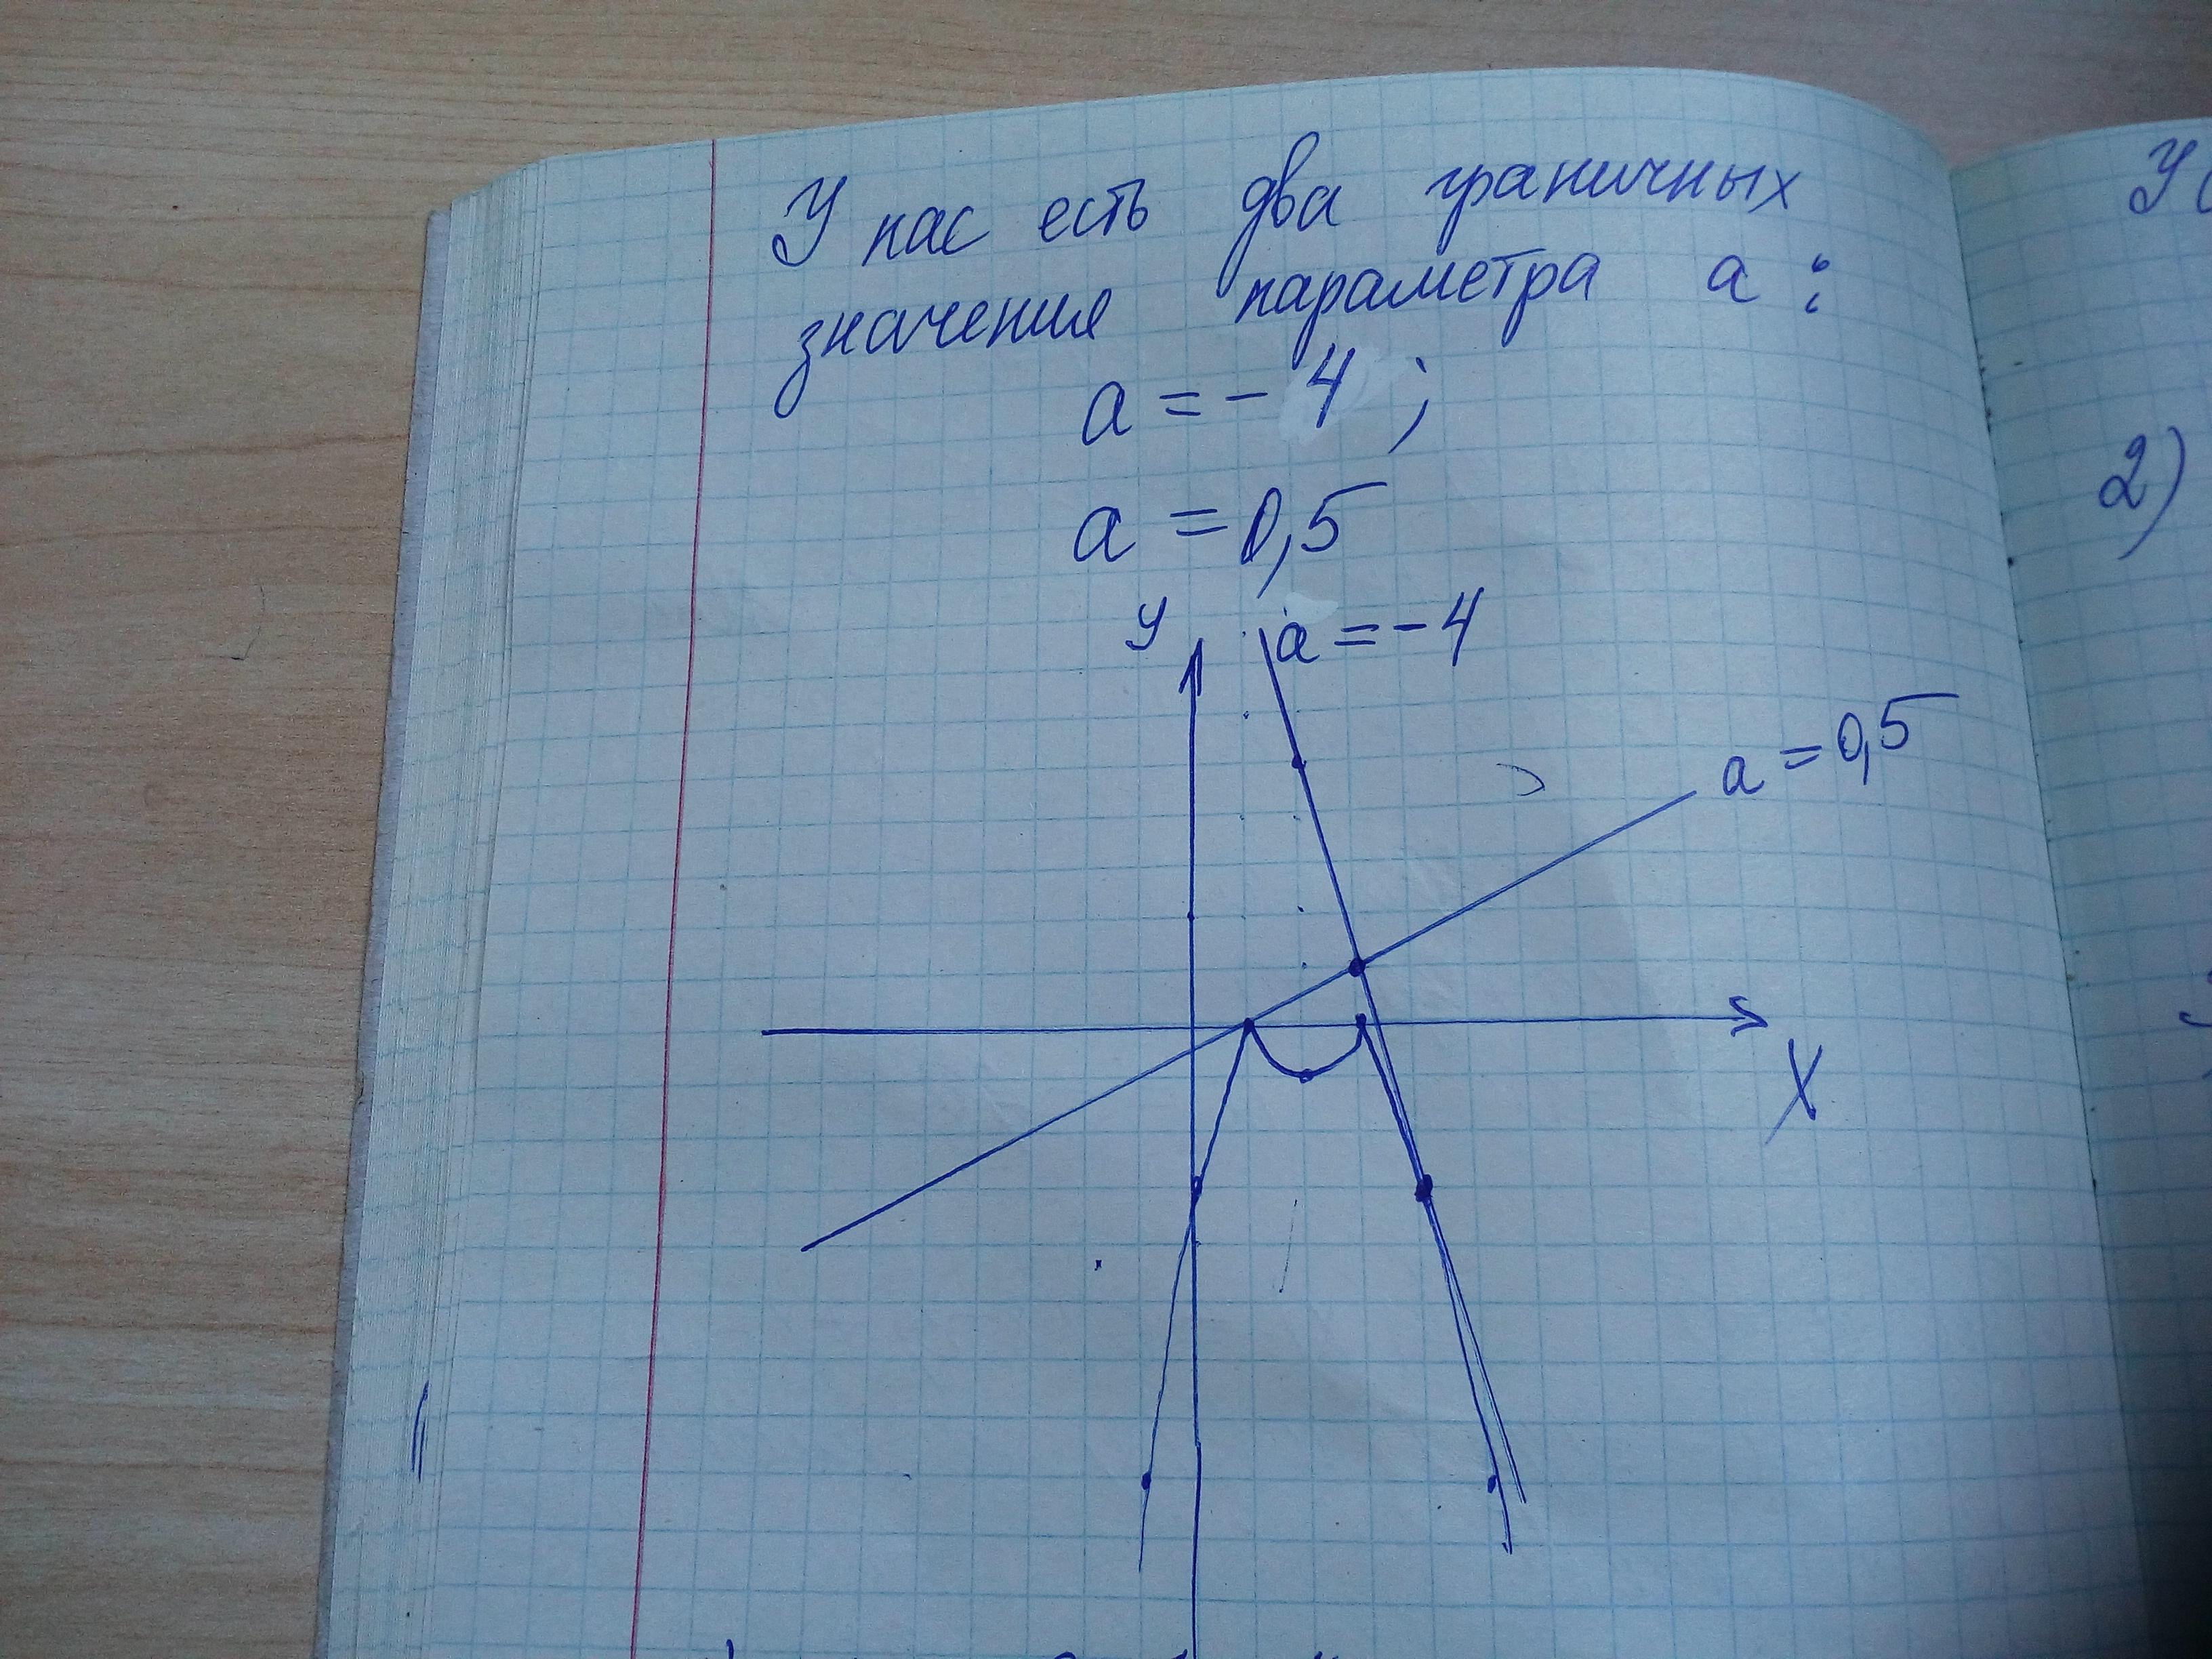 У нас есть два граничных
значения параметра a:
a = -4;
a = 0,5
y
a = -4
a = 0,5
X
У
2)